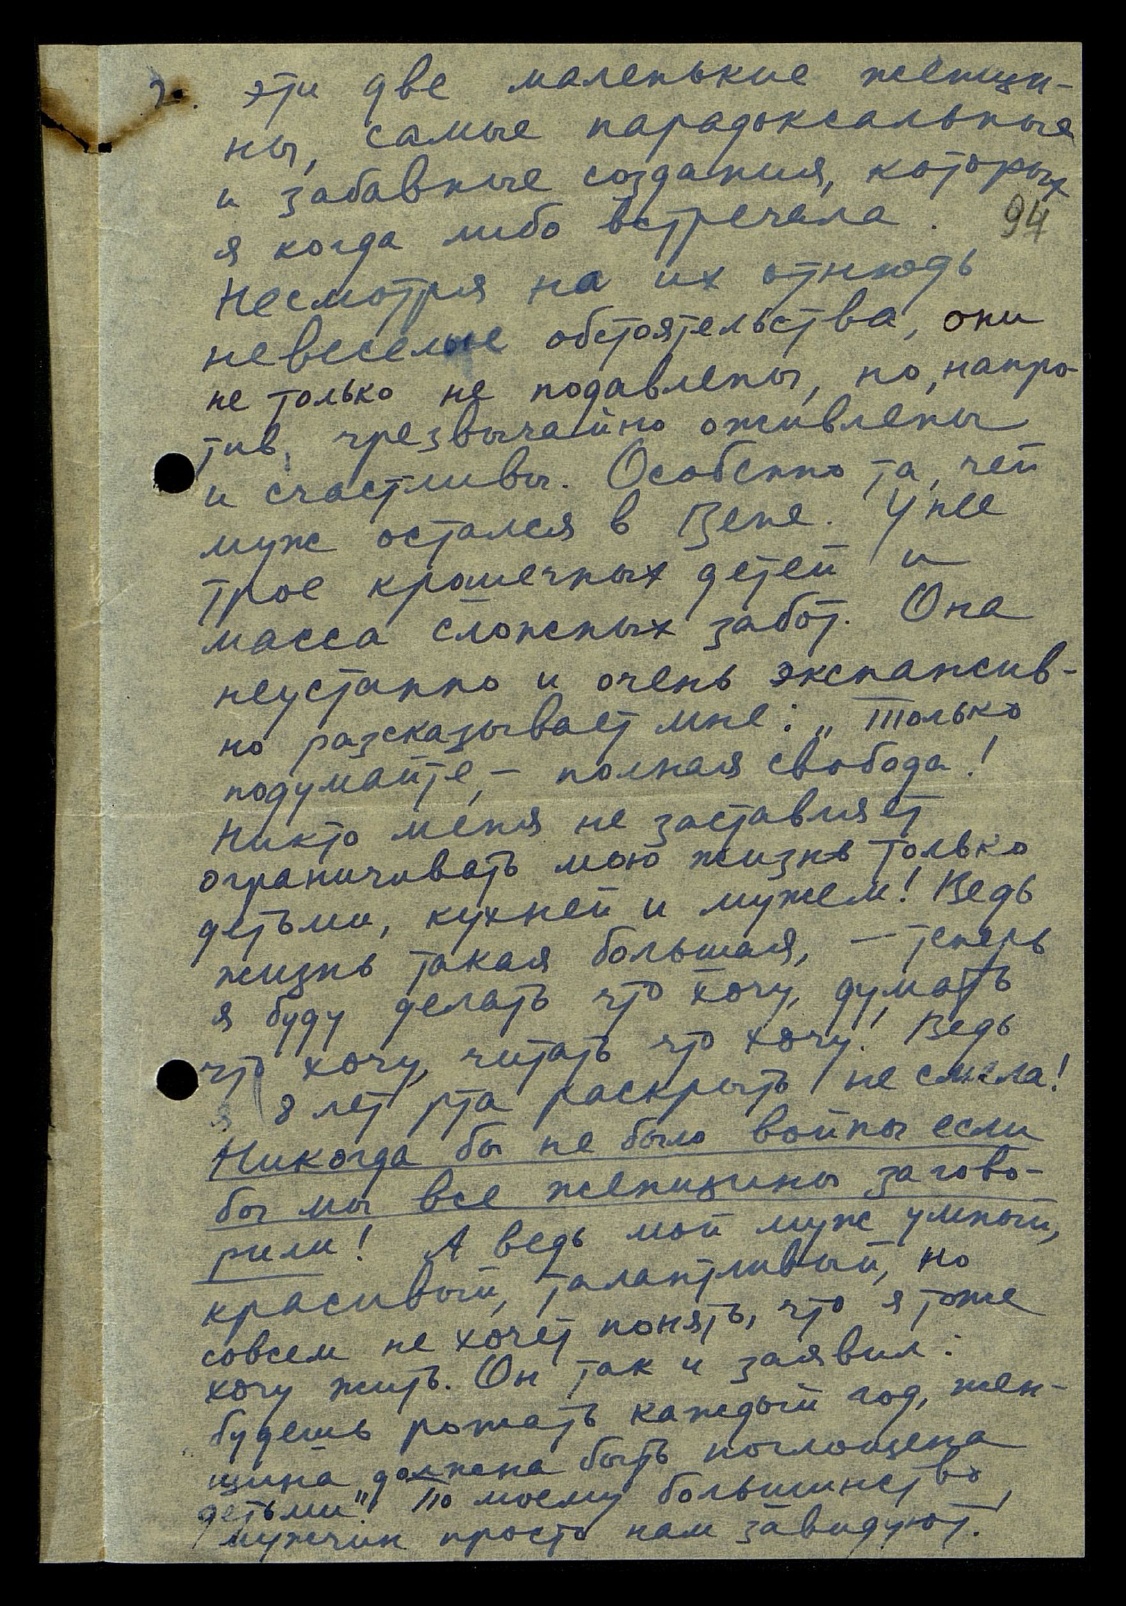 2. эти две маленькие женщи-
ны, самые парадоксальные
и забавные создания, которых
94
я когда либо встречала.
Несмотря на их отнюдь
невеселые обстоятельства, они
не только не подавлены, но, напро-
тив, чрезвычайно оживлены
и счастливы. Особенно та, чей
муж остался в Вене. У нее
трое крошечных детей и
масса сложных забот. Она
неустанно и очень экспансив-
но разсказывает мне: „Только
подумайте, – полная свобода!
Никто меня не заставляет
ограничивать мою жизнь только
детьми, кухней и мужем! Ведь
жизнь такая большая, – теперь
я буду делать что хочу, думать
что хочу, читать что хочу! Ведь
я 8 лет рта раскрыть не смела!
Никогда бы не было войны если
бы мы все женщины загово-
рили! А ведь мой муж умный,
красивый, талантливый, но
совсем не хочет понять, что я тоже
хочу жить. Он так и заявил:
будешь рожать каждый год, жен-
щина должна быть поглощена
детьми". По моему большинство
мужчин просто нам завидуют.